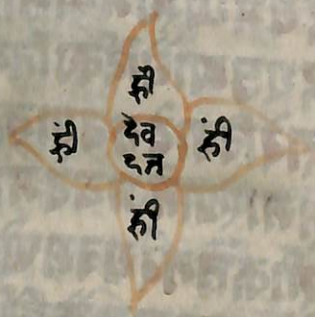 ह्रीं
ह्रीं
देव
दत्त
ह्रीं
ह्रीं